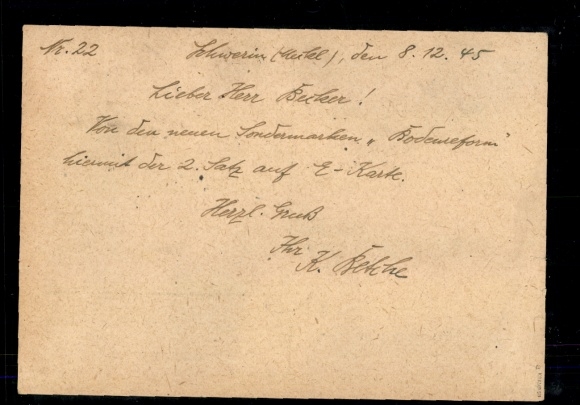 Nr. 22
Schwerin (Meckl), den 8.12.45
Lieber Herr Becker!
Von den neuen Sondermarken „Bodenreform"
hiermit der 2. Satz auf E-Karte.
Herzl. Gruß
Ihr
K.